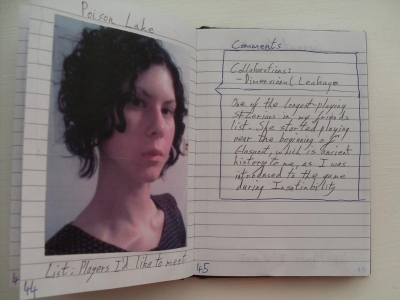 Poison Lake
List: Players I'd like to meet
44
Comments
Collaborations:
- Dimensional Leakage
One of the longest playing
SFZerians in my friends
list. She started playing
near the beginning of
which is ancient
history to me, as I was
introduced to the game
during Insatiability
45